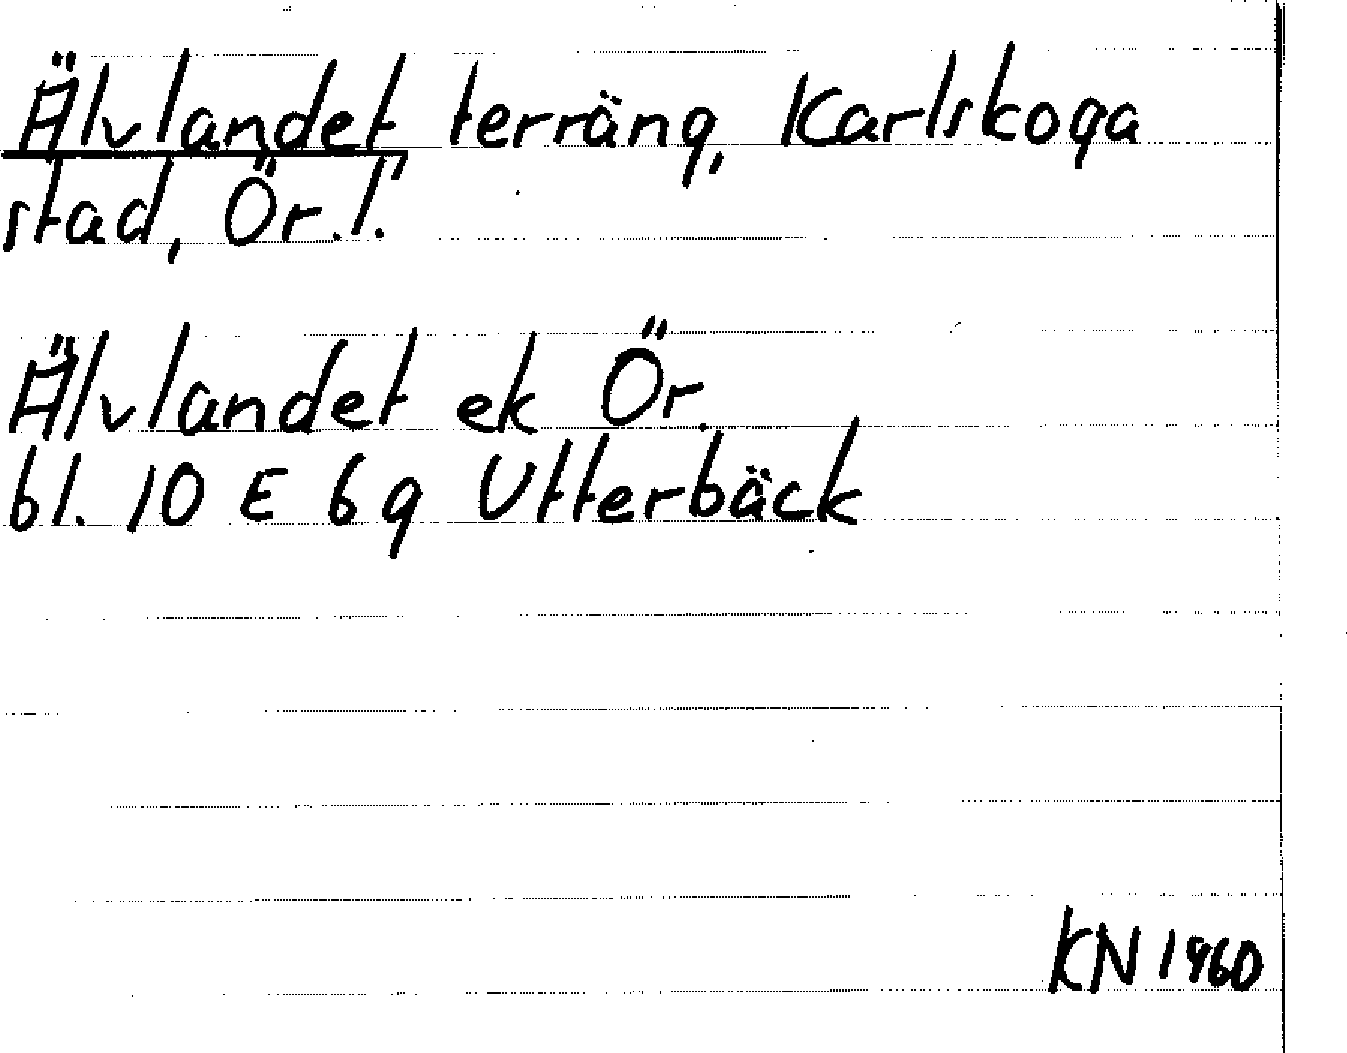 Älvlandet terräng, Karlskoga
stad, Ör. l.
Älvlandet ek Ör.
bl. 10 E 6 g Utterbäck
KN 1960